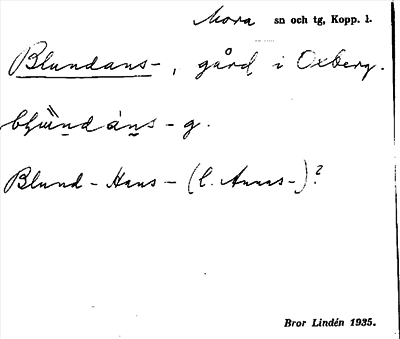 Mora sn och tg, Kopp. l.
Blundans-, gård i Oxberg.
-g.
Blund-Hans- (l. Annas-)?
Bror Lindén 1935.